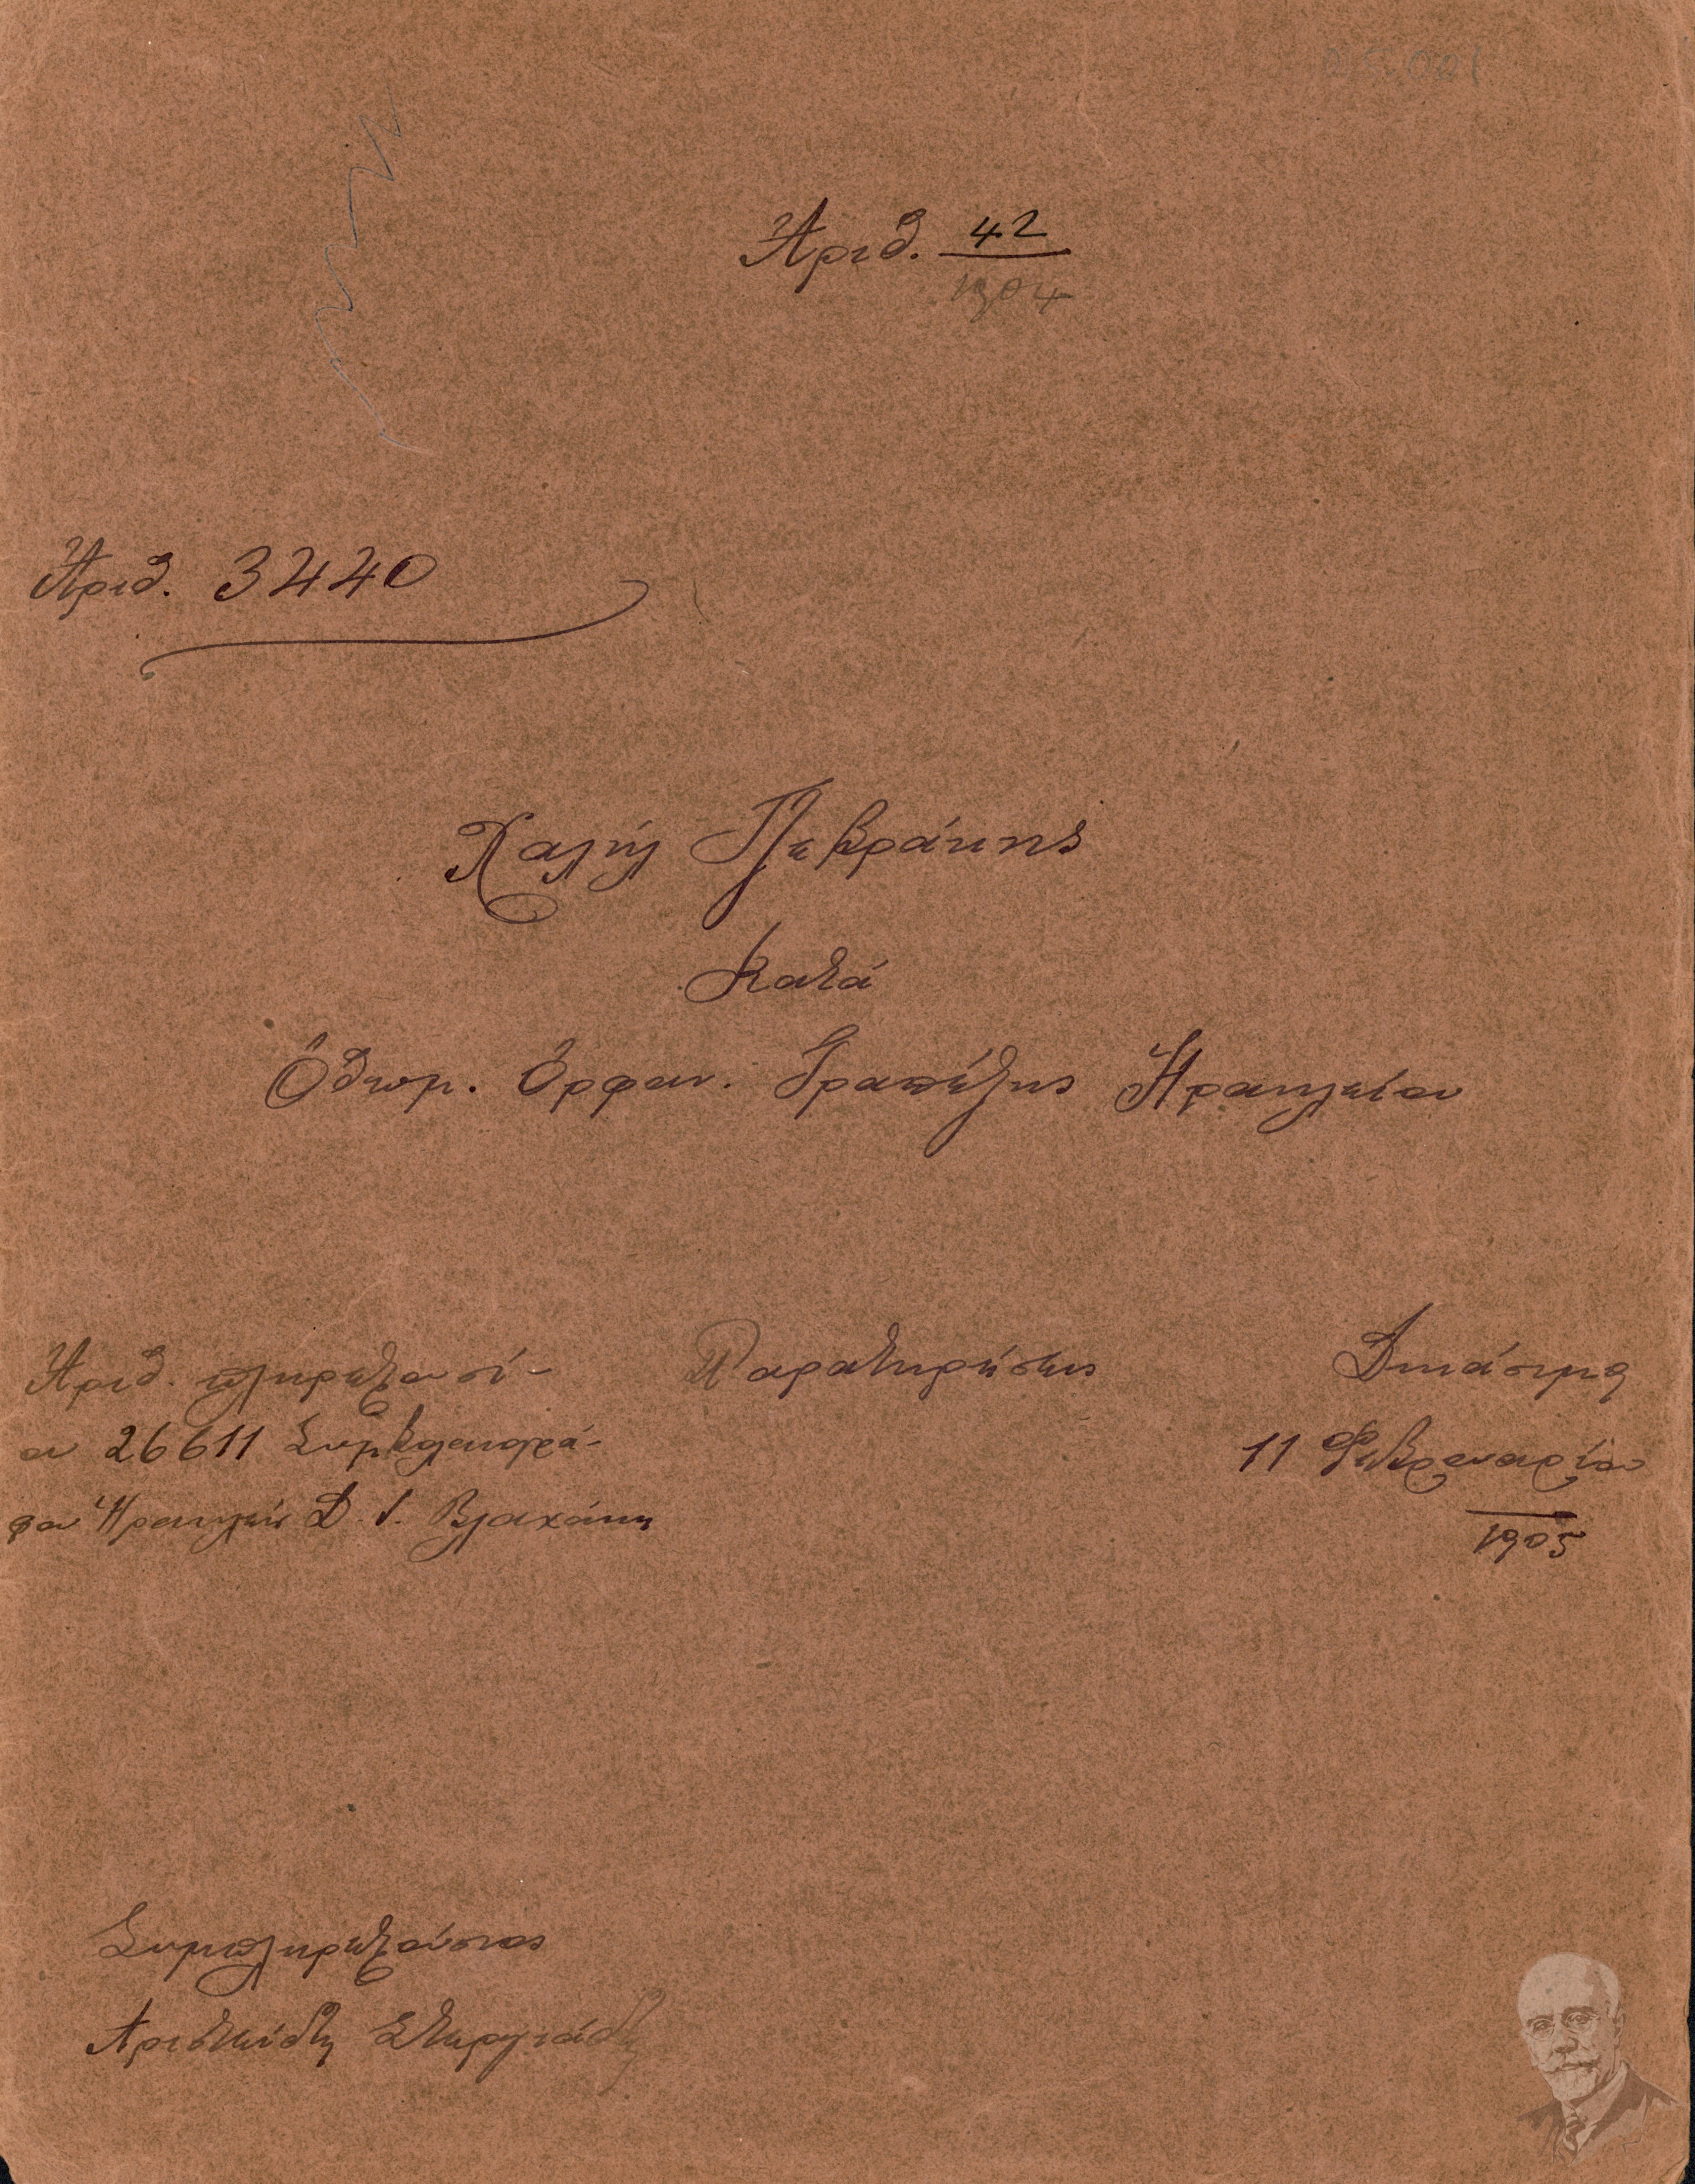 Ἀριθ. 42
1904
Ἀριθ. 3440
Χαλήλ Πεβράκης
Κατά
Ὀθωμ. Ὀρφαν. Τραπέζης Ἡρακλείου
Ἀριθ. πληρεξουσί-
ου 26611 Συμβολαιογρά-
φου Ἡρακλείου Δ. Ι. Βλαχάκη
Παρατηρήσεις
Δικάσιμος
11 Φεβρουαρίου
1905
Συμπληρεξούσιος
Ἀριστείδη Στεργιάδη